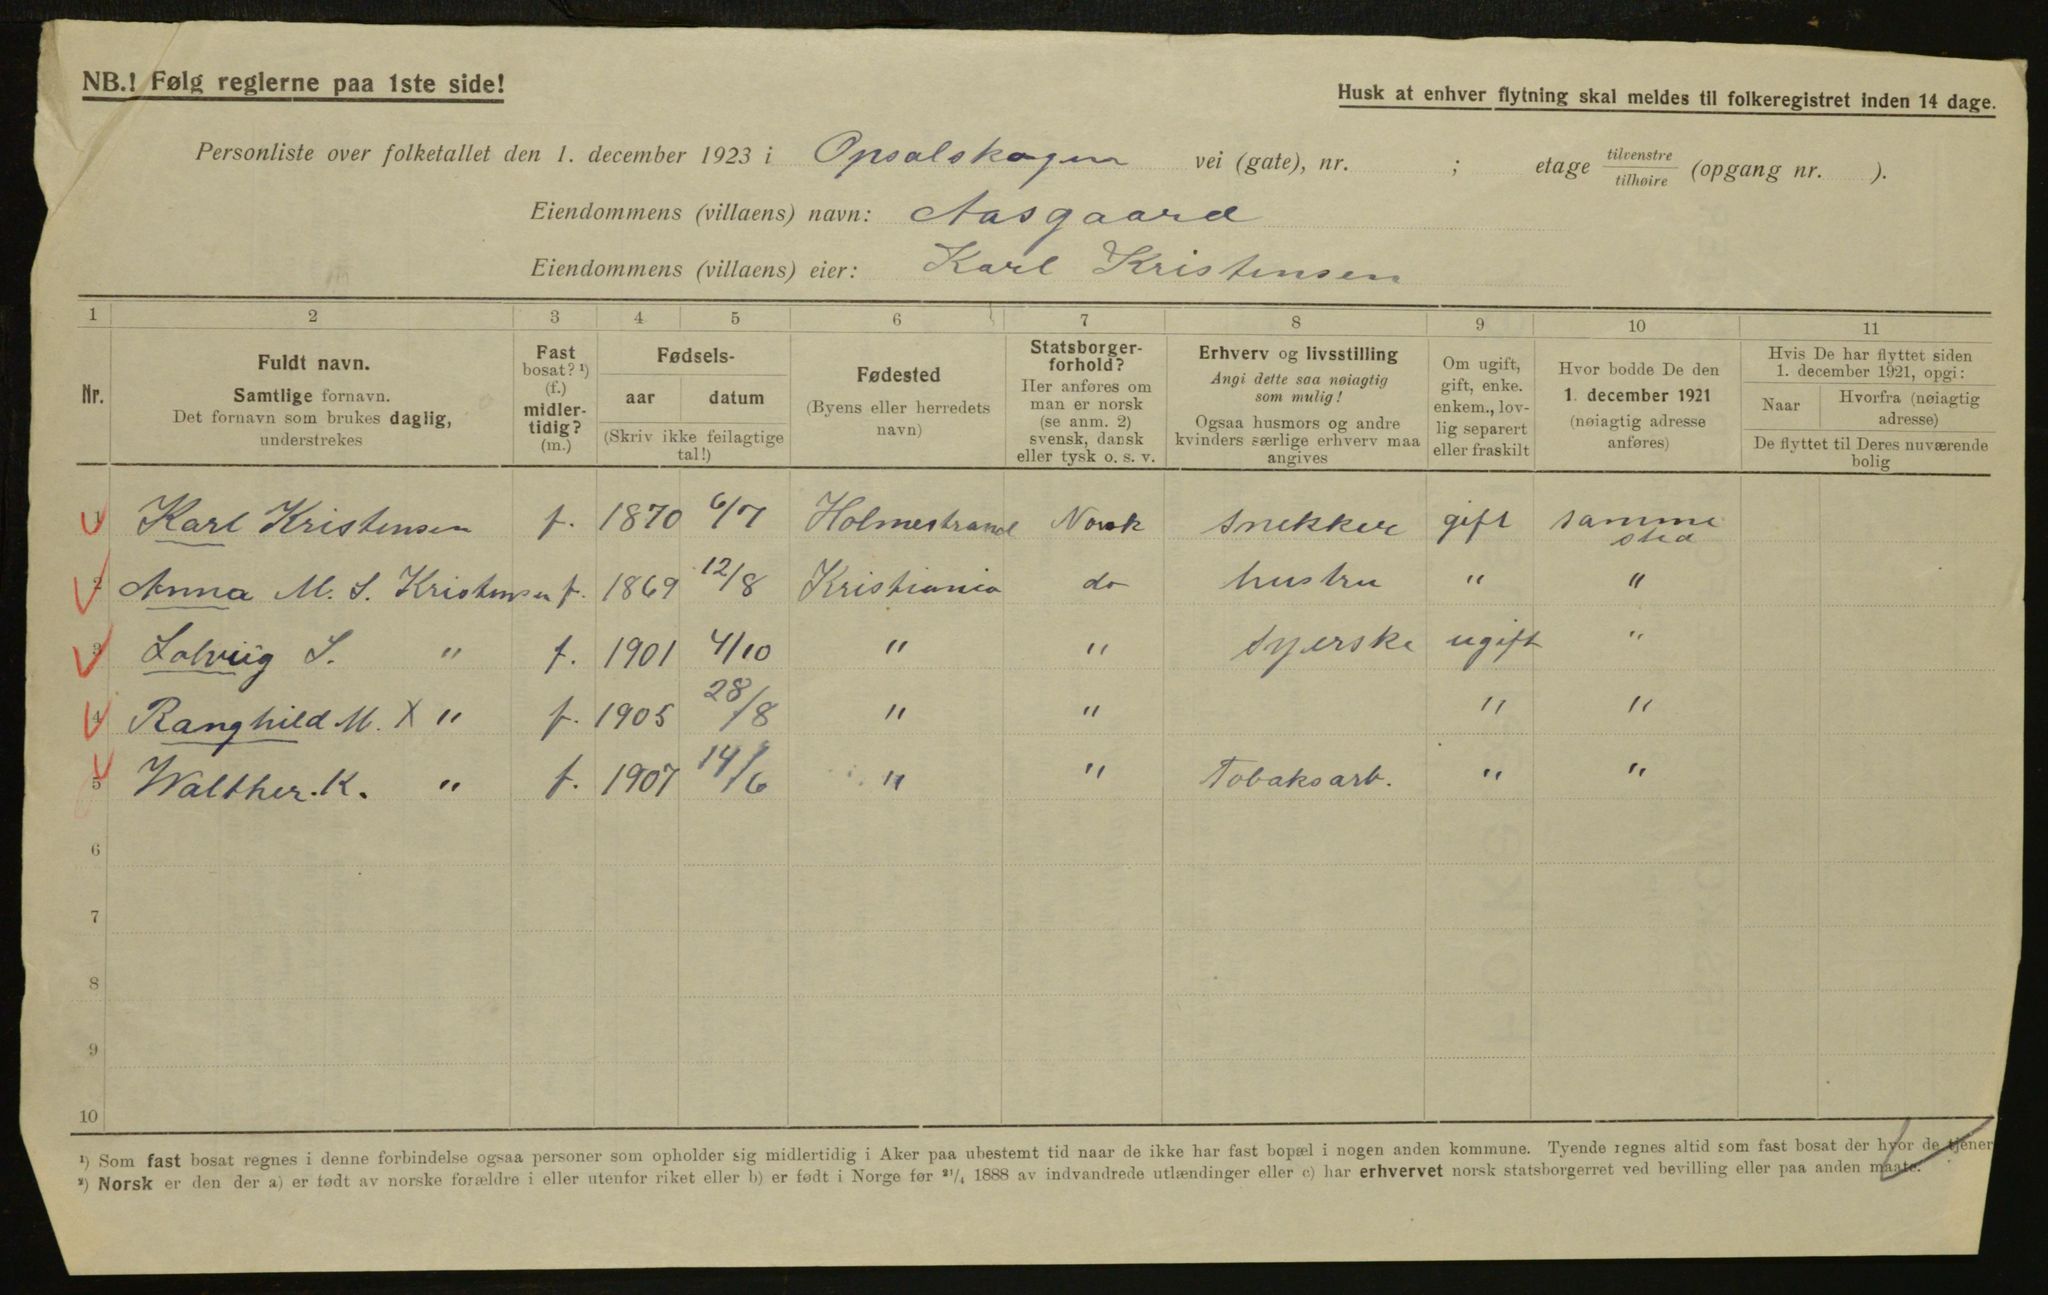 NB.! Følg reglerne paa 1ste side!
Husk at enhver flytning skal meldes til folkeregistret inden 14 dage.
Personliste over folketallet den 1. december 1923 i Opsalskogen vei (gate), nr. ; etage tilvenstre/tilhøire (opgang nr. ).
Eiendommens (villaens) navn: Aasgaard
Eiendommens (villaens) eier: Karl Kristensen
1 2 3 4 5 6 7 8 9 10 11
Nr.
Fuldt navn.
Samtlige fornavn.
Det fornavn som brukes daglig,
understrekes
Fast
bosat? ¹)
(f.)
midler-
tidig?
(m.)
Fødsels-
aar datum
(Skriv ikke feilagtige
tal!)
Fødested
(Byens eller herredets
navn)
Statsborger-
forhold?
Her anføres om
man er norsk
(se anm. 2)
svensk, dansk
eller tysk o. s. v.
Erhverv og livsstilling
Angi dette saa nøiagtig
som mulig!
Ogsaa husmors og andre
kvinders særlige erhverv maa
angives
Om ugift,
gift, enke.
enkem., lov-
lig separert
eller fraskilt
Hvor bodde De den
1. december 1921
(nøiagtig adresse
anføres)
Hvis De har flyttet siden
1. december 1921, opgi:
Naar Hvorfra (nøiagtig
adresse)
De flyttet til Deres nuværende
bolig
1 Karl Kristensen f. 1870 6/7 Holmestrand Norsk snekker gift samme
sted
2 Anna M. S. Kristensen f. 1869 12/8 Kristiania do hustru " "
3 Solveig S. " f. 1901 4/10 " " syerske ugift "
4 Ranghild M. X " f. 1905 28/8 " " " "
5 Walther. K. " f. 1907 14/6 " " Tobaksarb. " "
6
7
8
9
10
¹) Som fast bosat regnes i denne forbindelse ogsaa personer som opholder sig midlertidig i Aker paa ubestemt tid naar de ikke har fast bopæl i nogen anden kommune. Tyende regnes altid som fast bosat der hvor de tjener
²) Norsk er den der a) er født av norske forældre i eller utenfor riket eller b) er født i Norge før ²¹/₄ 1888 av indvandrede utlændinger eller c) har erhvervet norsk statsborgerret ved bevilling eller paa anden maate.